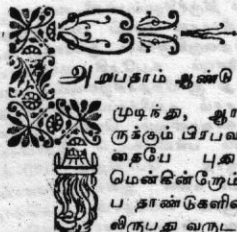 அறுபதாம் ஆண்டு
முடிந்து, ஆர
ருக்கும் பிரபவ
தைபே புது
மென்கின்றோம்
ப தாண்டுகளின்
லிருபது வருட